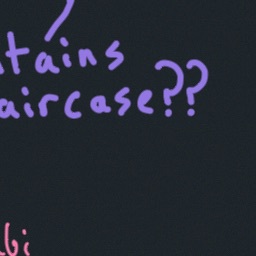 tains
aircase??
bi